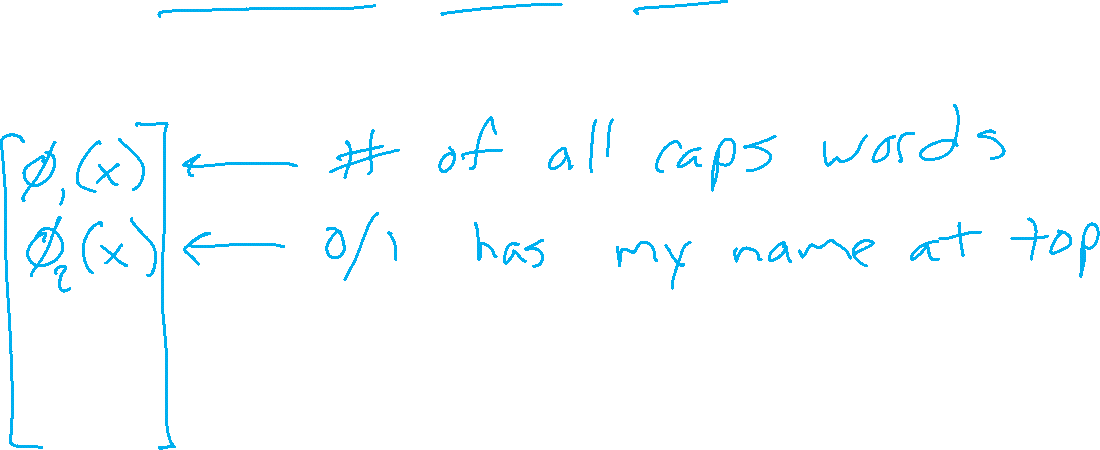 ϕ₁(x) ← # of all caps words
ϕ₂(x) ← 0/1 has my name at top